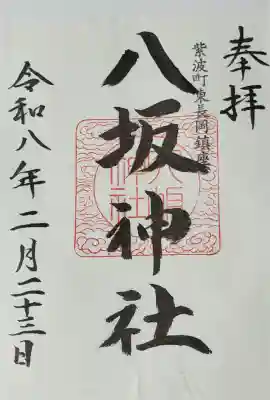 奉拝
紫波町東長岡鎮座
八坂神社
令和八年二月二十三日
八坂神社